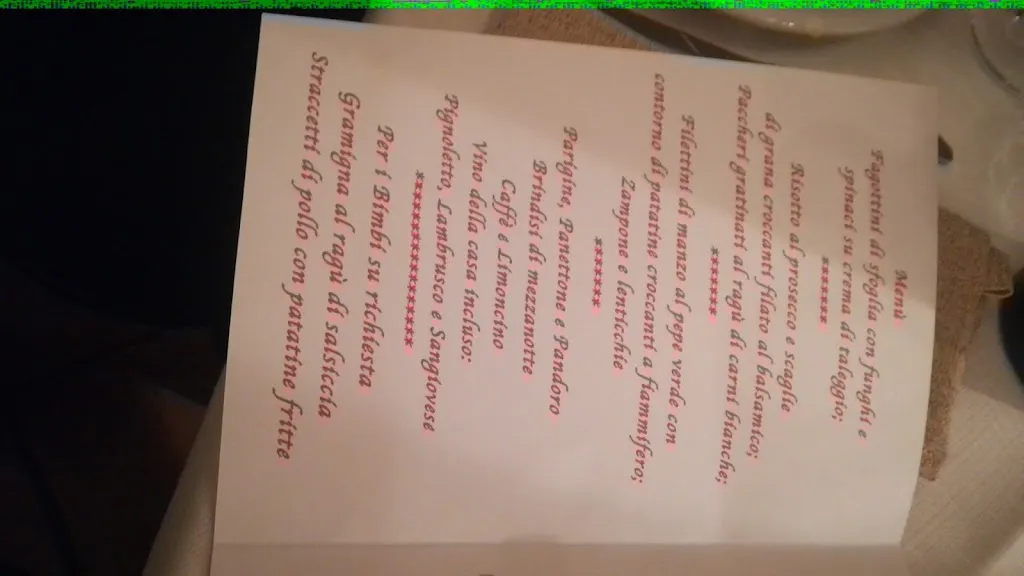 Menù
Fagottini di sfoglia con funghi e
spinaci su crema di taleggio;
*******
Risotto al proseco e scaglie
di grana croccanti filato al balsamico;
Paccheri gratinati al ragù di carni bianche;
*******
Filettini di manzo al pepe verde con
contorno di patatine croccanti a fiammifero;
Zampone e lenticchie
*******
Parigine, Panettone e Pandoro
Brindisi di mezzanotte
Caffè e Limoncino
Vino della casa incluso:
Pignoletto, Lambrusco e Sangiovese
******************
Per i Bimbi su richiesta
Gramigna al ragù di salsiccia
Straccetti di pollo con patatine fritte